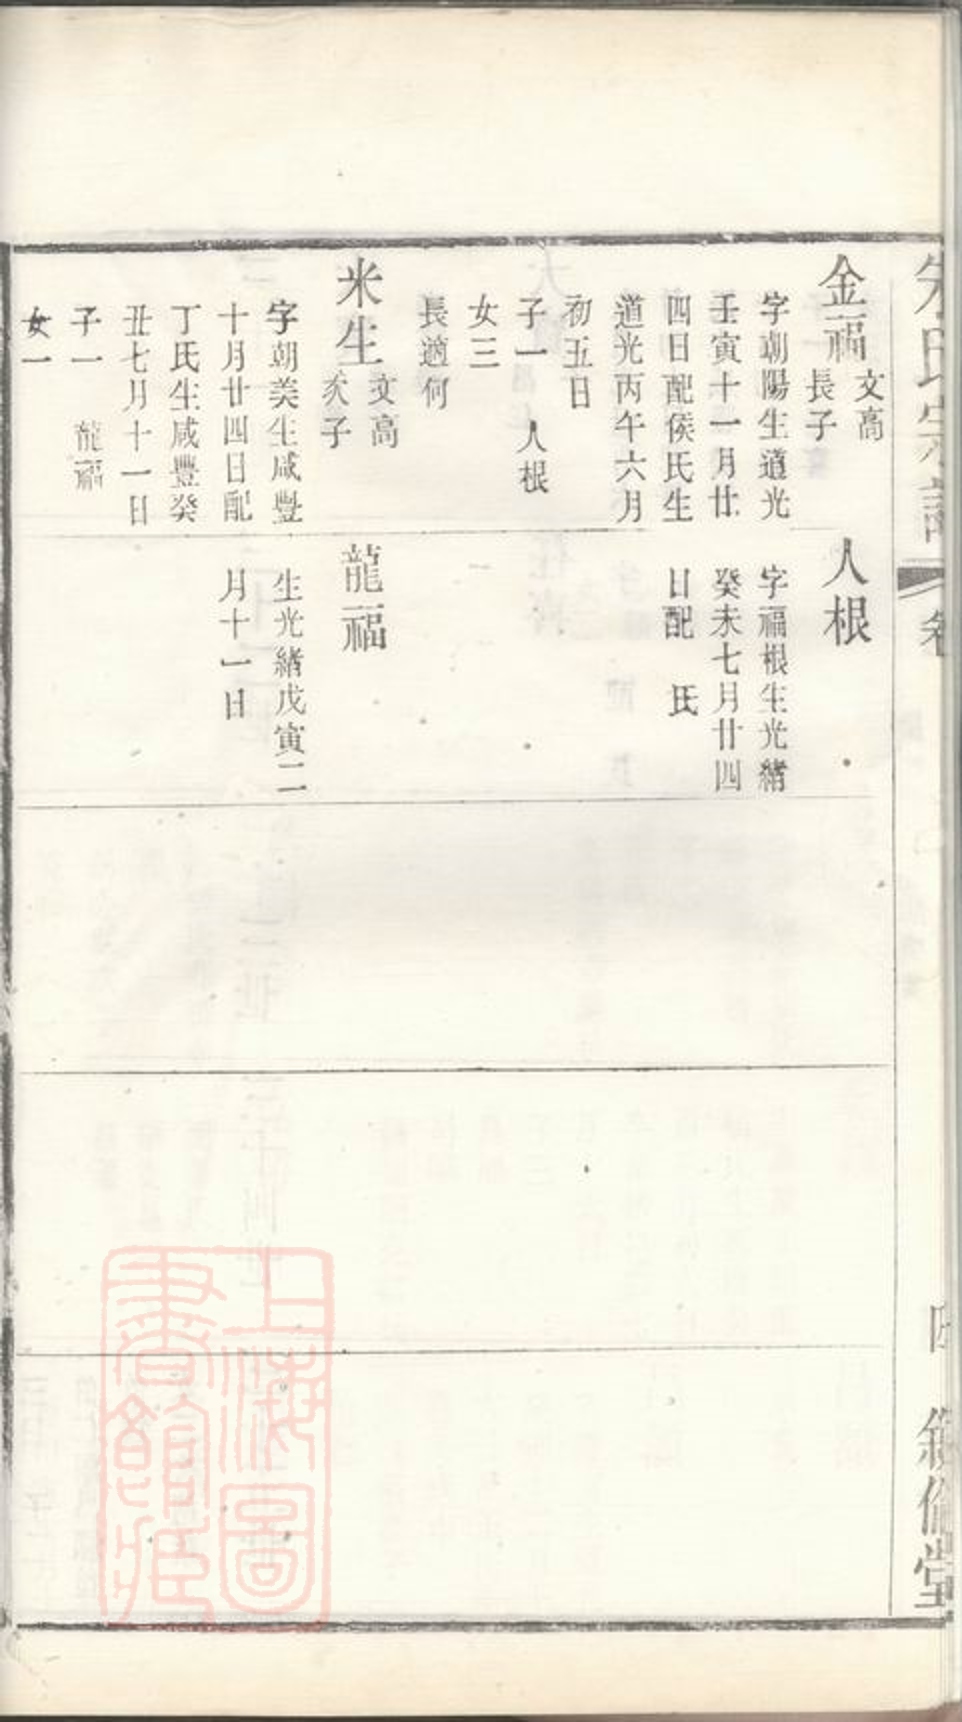 朱氏宗譜
卷
敘倫堂
金福
文高
長子
字朝陽生道光
壬寅十一月廿
四日配侯氏生
道光丙午六月
初五日
子一 人根
女三
長適何
米生
文高
次子
字朝美生咸豐
十月廿四日配
丁氏生咸豐癸
丑七月十一日
子一 龍福
女一
人根
字福根生光緒
癸未七月廿四
日配 氏
龍福
生光緒戊寅二
月十一日
上海圖
書館藏